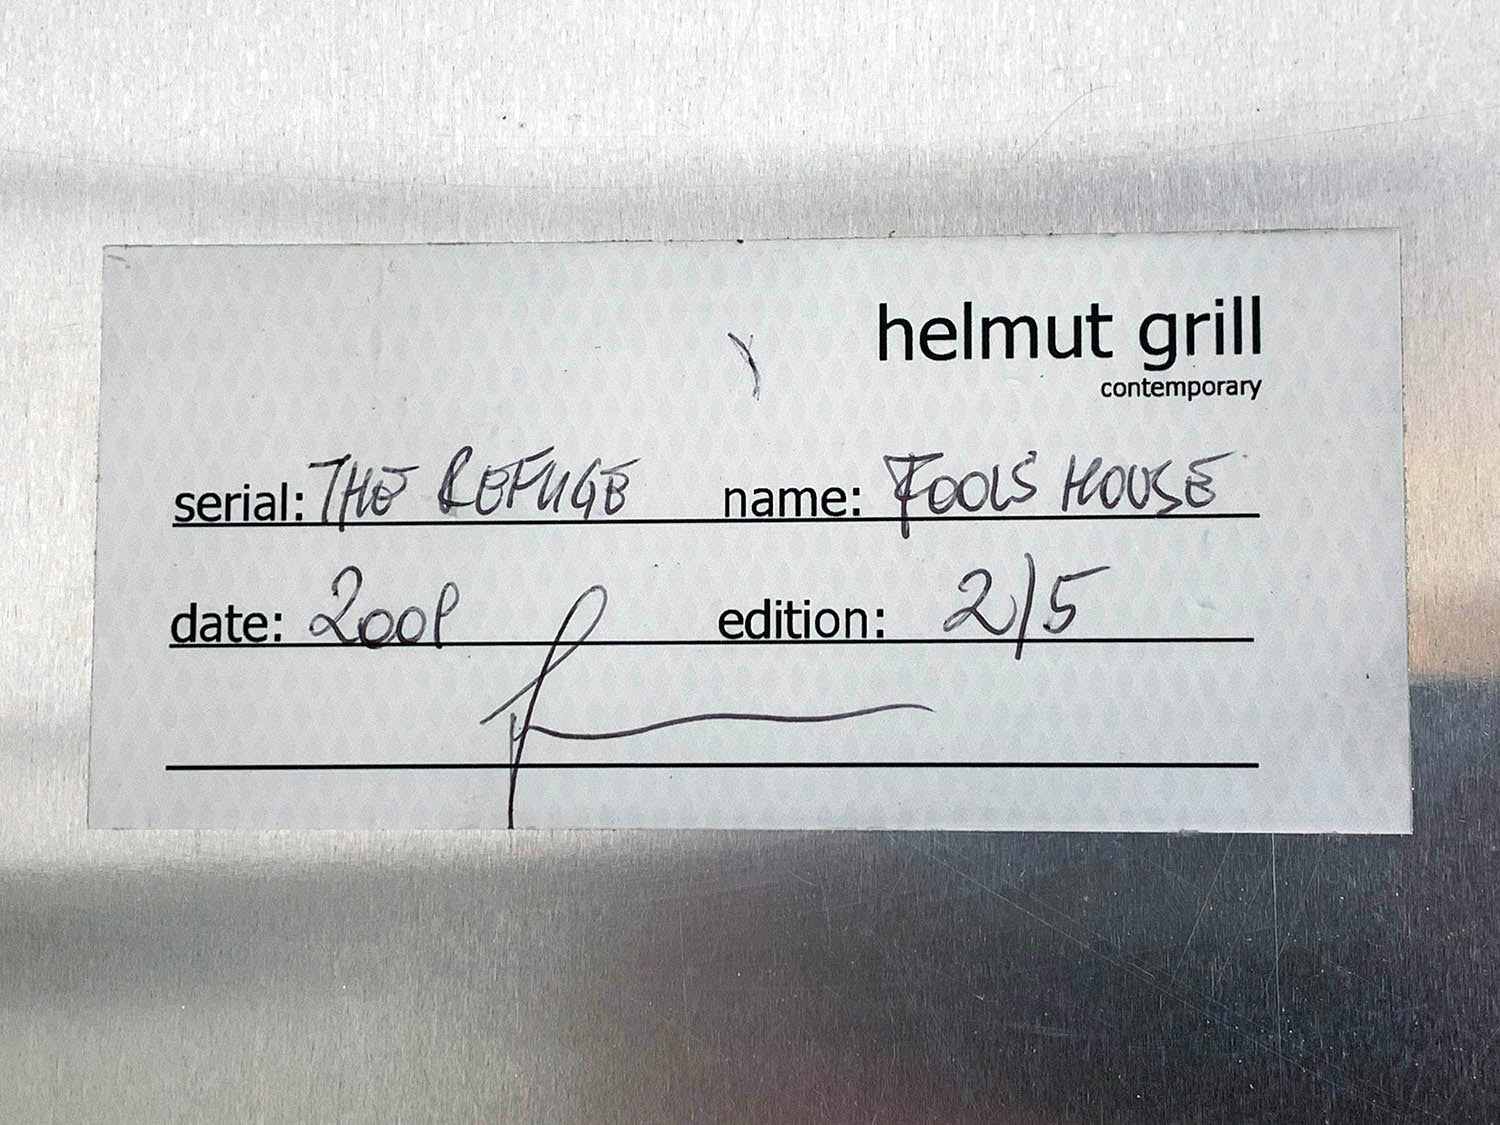 helmut grill
contemporary
serial: THE REFUGE name: FOOLS HOUSE
date: 2009 edition: 2/5